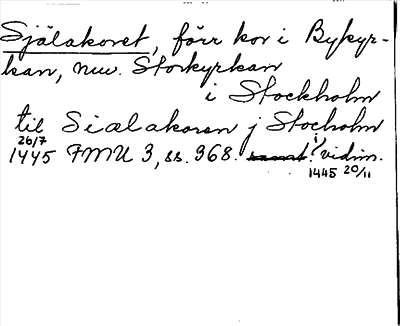 Själakoret, förr kor i Bykyr-
kan, nuv. Storkyrkan
i Stockholm
til Siælakoren j Stocholm
26/7
1445 FMU 3, ss. 368. i vidim.
1445 20/11